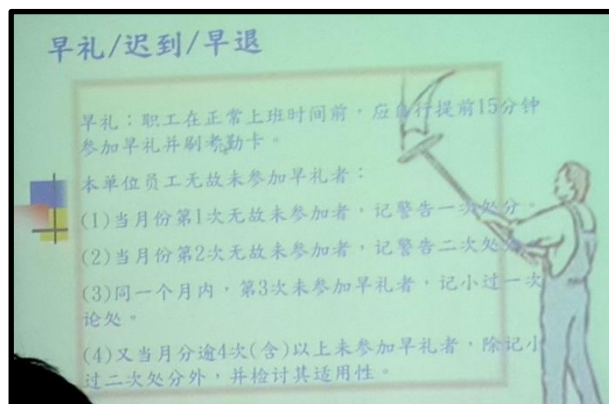 早礼/迟到/早退
早礼：职工在正常上班时间前，应自行提前15分钟
参加早礼并刷考勤卡。
本单位员工无故未参加早礼者：
(1)当月份第1次无故未参加者，记警告一次处分。
(2)当月份第2次无故未参加者，记警告二次处分
(3)同一个月内，第3次未参加早礼者，记小过一次
论处。
(4)又当月分逾4次(含)以上未参加早礼者，除记小
过二次处分外，并检讨其适用性。